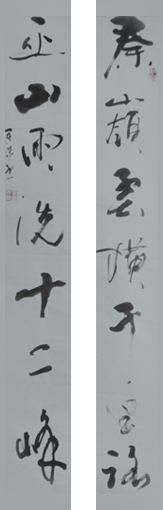 秦嶺雲橫千里路
巫山雨洗十二峰